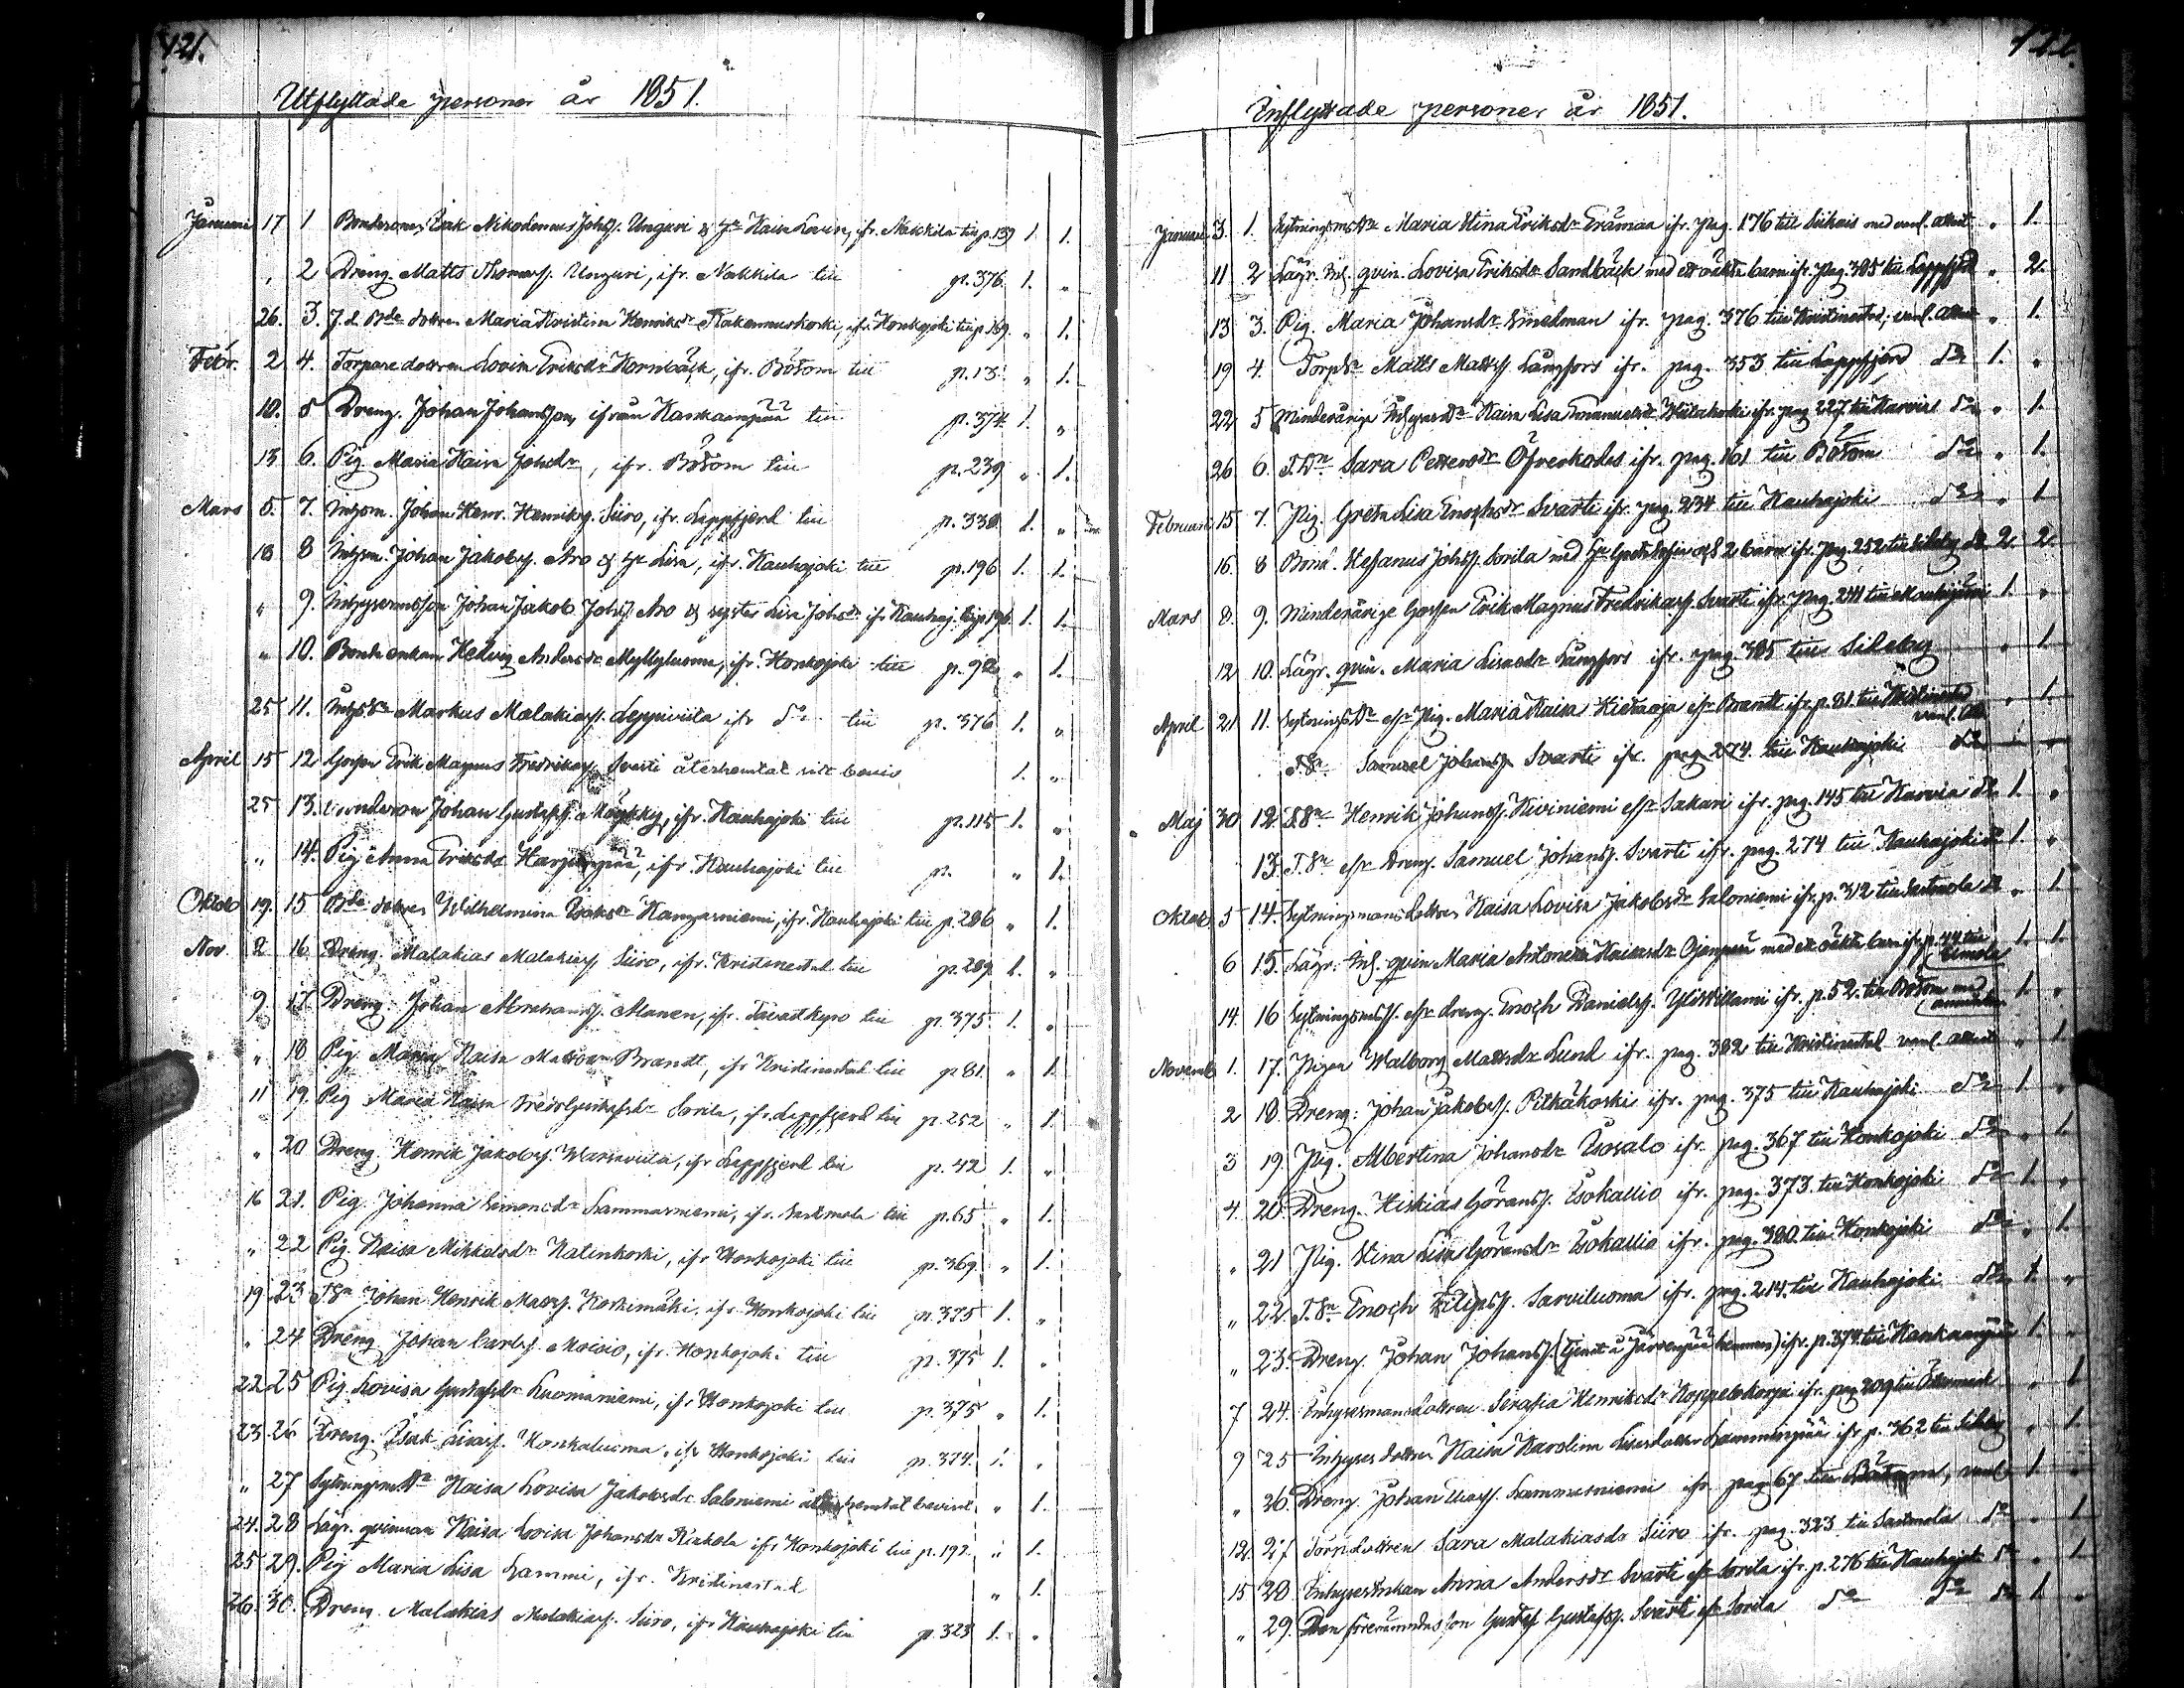 121.
Utflyttade personer år 1851.
Januari 17 1 Isak Nikodemus Johss. Unguri & Kaisa Lovisa, ifr. Nakkila till p. 139 1. 1.
" 2 Dreng. Matts Thomass. Unguri, ifr. Nakkila till p. 376. 1. "
26. 3. dottren Maria Kristina Henriksdr Rakennuskoski, ifr. Honkojoki till p. 169. " 1.
Febr. 2 4. Torpare dottren Lovisa Eriksdr Kornbäck, ifr. Bötom till p. 13. " 1.
10. 5 Dreng. Johan Johansson, ifrån Kankaanpää till p. 374. 1. "
13 6. Pig. Maria Kaisa Johsdr, ifr. Bötom till p. 239 " 1.
Mars 5. 7. Johan Henr. Henrikss. Siiro, ifr. Lappfjerd till p. 330. 1. "
18 8 Johan Jakobss. Aro & Lisa, ifr. Kauhajoki till p. 196 1. 1.
" 9. Johan Jakob Johss. Aro & syster Lisa Johsdr ifr. Kauhaj. till p. 196. 1. 1.
" 10. Bonde enkan Hedvig Andersdr Myllyluoma, ifr. Honkojoki till p. 92 " 1.
25 11. Markus Malakiass. Leppiviita ifr do till p. 376 1. "
April 15 12 Gossen Erik Magnus Fredrikass. Svarti återhemtat sitt bevis 1. "
25 13. Johan Gustafss. Mäykky, ifr. Kauhajoki till p. 115 1. "
" 14. Pig Anna Eriksdr Harjanpää, ifr. Kauhajoki till p. " 1.
Oktob. 19. 15 dottren Wilhelmina Isaksdr Kangasniemi, ifr. Kauhajoki till p. 286 " 1.
Nov. 2 16. Dreng. Malakias Malakiass. Siiro, ifr. Kristinestad till p. 289. 1. "
9. 17. Dreng. Johan Abrahamss. Manen, ifr. Tavastkyro till p. 375. 1. "
" 18 Pig. Maria Kaisa Brandt, ifr Kristinestad till p 81. " 1.
11 19. Pig Maria Kaisa Gustafsdr Sorila, ifr. Lappfjerd till p. 252 " 1.
" 20 Dreng. Henrik Jakobss. Warsaviita, ifr Lappfjerd till p. 42 1. "
16 21. Pig. Johanna Simonsdr Lammasniemi, ifr. Sastmola till p. 65 " 1.
" 22 Pig. Kaisa Mikkelsdr Katinkoski, ifr Honkojoki till p. 369. " 1.
19 23 Johan Henrik Matss. Koskimäki, ifr. Honkojoki till p. 375 1. "
" 24 Dreng Johan Carlss. Moisio, ifr. Honkojoki till p. 375 1. "
22 25 Pig. Lovisa Gustafsdr Luomaniemi, ifr Honkojoki till p. 375 " 1.
23 26 Dreng. Isak Honkaluoma, ifr Honkojoki till p. 374. 1. "
" 27 Kaisa Lovisa Jakobsdr Saloniemi återhemtat beviset " 1.
24. 28 Lägr. qvinnan Kaisa Lovisa Johansdr Kiukola ifr Honkojoki till p. 192. " 1.
25 29. Pig Maria Lisa Lammi, ifr. Kristinestad " 1.
26. 30. Dreng. Malakias Malakiass. Siiro, ifr Kauhajoki till p. 323 1. "
122.
Inflyttade personer år 1851.
Januari 3. 1. Maria Stina Eriksdr Trämaa ifr. pag. 176 till Siikais med vanl. attest " 1.
11 2 Lägr. qvin. Lovisa Eriksdr Sandbäck med ett oäkta barn ifr. pag. 385 till Lappfjerd " 2.
13 3. Pig. Maria Johansdr Smedman ifr. pag. 376 till Kristinestad, vanl. attest " 1.
19 4. Matts Matss. Långfors ifr. pag. 353 till Lappfjerd do 1. "
22 5 Minderåriga Kaisa Lisa Emanuelsdr ifr. pag 227 till Karvia do " 1.
26 6. Sara Pettersdr Öfverkodes ifr. pag. 161 till Bötom do " 1.
Februari 15 7. Pig. Greta Lisa Enochsdr Svarti ifr. pag. 234 till Kauhajoki do " 1
16. 8 Bond. Stefanus Johss. Sorila med 2 barn ifr. pag. 252 till Sideby do 2. 2.
Mars 8. 9. Minderårige Gossen Erik Magnus Fredrikass. Svarti ifr. pag. 241 till 1. "
12 10. Lägr. qvin. Maria Lisasdr Långfors ifr. pag. 385 till Sideby " 1.
April 21 11. Pig. Maria Kaisa Brandt ifr. p. 81 till Kristinestad vanl. att. " 1.
Samuel Johanss Svarti ifr. pag 274. till Kauhajoki do
Maj 30 12. Henrik Johanss. Kiviniemi Sakari ifr. pag. 145 till Karvia do 1. "
13. Dreng. Samuel Johanss. Svarti ifr. pag. 274 till Kauhajoki do 1. "
Oktob. 5 14. Sytningsmans dottren Kaisa Lovisa Jakobsdr Saloniemi ifr. p. 312 till Sastmola do " 1.
6 15. Lägr. qvin Maria Antonetta Ojanpää med ett oäkta barn ifr. p. 44 till 1. 1.
14. 16 dreng. Enoch Danielss. ifr. p. 52. till Bötom med 1. "
Novemb. 1. 17. Pigan Walborg Mattsdr Lund ifr. pag. 382 till Kristinestad vanl. attest " 1.
2 18. Dreng. Johan Jakobss. Pitkäkoski ifr. pag. 375 till Kauhajoki do 1. "
3 19. Pig. Albertina Johansdr Isosalo ifr. pag. 367 till Honkojoki do " 1.
4. 20. Dreng. Hiskias Göranss. Isokallio ifr. pag. 373. till Honkojoki do 1. "
" 21 Pig. Stina Lisa Göransdr Isokallio ifr. pag. 380 till Honkojoki do " 1.
" 22. Enoch Filipss. Sarviluoma ifr. pag. 214. till Kauhajoki do 1. "
" 23. Dreng. Johan Johanss. (tjent å Järvenpää hemman) ifr. p. 374. till Kankaanpää 1. "
7 24. Inhysesmansdottren Serafia Henriksdr ifr. pag. 209 till Östermark " 1.
9 25 Inhyses dottren Kaisa Karolina ifr p. 362 till Sideby " 1.
" 26. Dreng. Johan Lammasniemi ifr pag 67 till Bötom, vanl. 1. "
12. 27 Torp dottren Sara Malakiasdr Siiro ifr. pag. 323 till Sastmola do " 1.
15 28 Inhysesenkan Anna Andersdr Svarti Sorila ifr. p. 276 till Kauhajoki do " 1.
" 29. Den förenämndes son Gustaf Gustafss. Svarti Sorila do do do 1. "